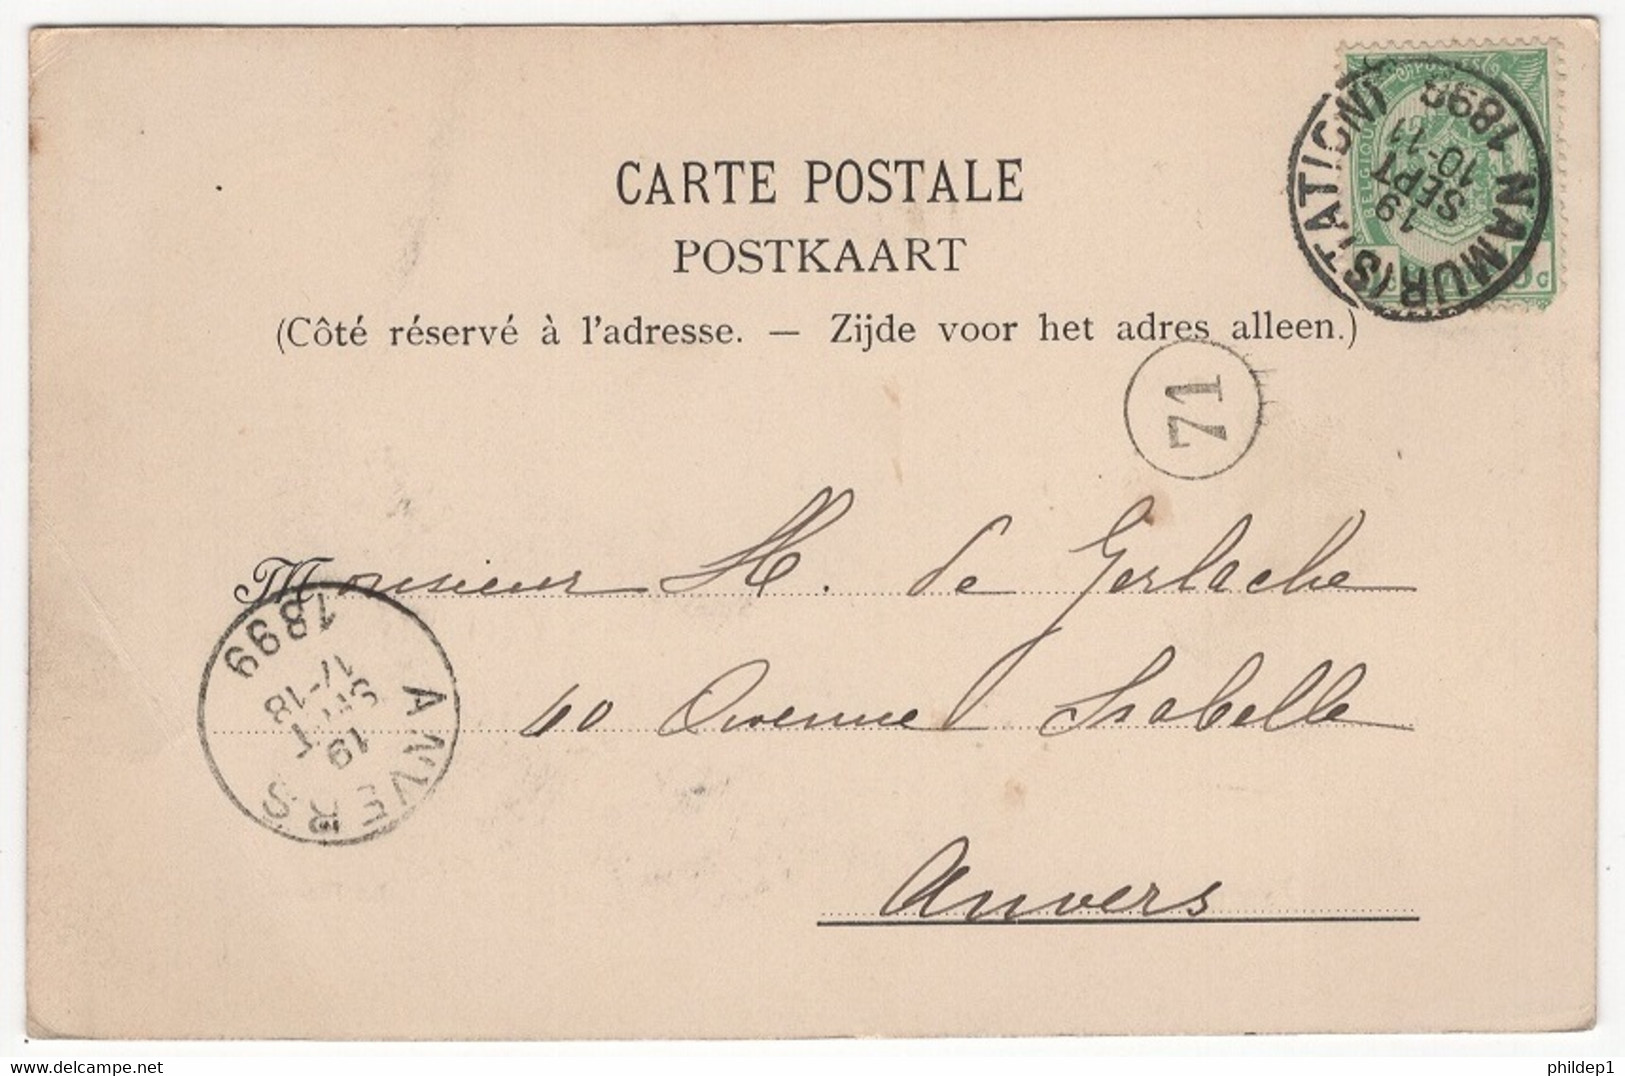 CARTE POSTALE
POSTKAART
(Côté réservé à l'adresse. — Zijde voor het adres alleen.)
POSTES
BELGIQUE
NAMUR (STATION)
19
SEPT
10-11
1899
71
Monsieur H. de Gerlache
40 Avenue Isabelle
Anvers
ANVERS
19
17-18
1899
delcampe.net
phildep1